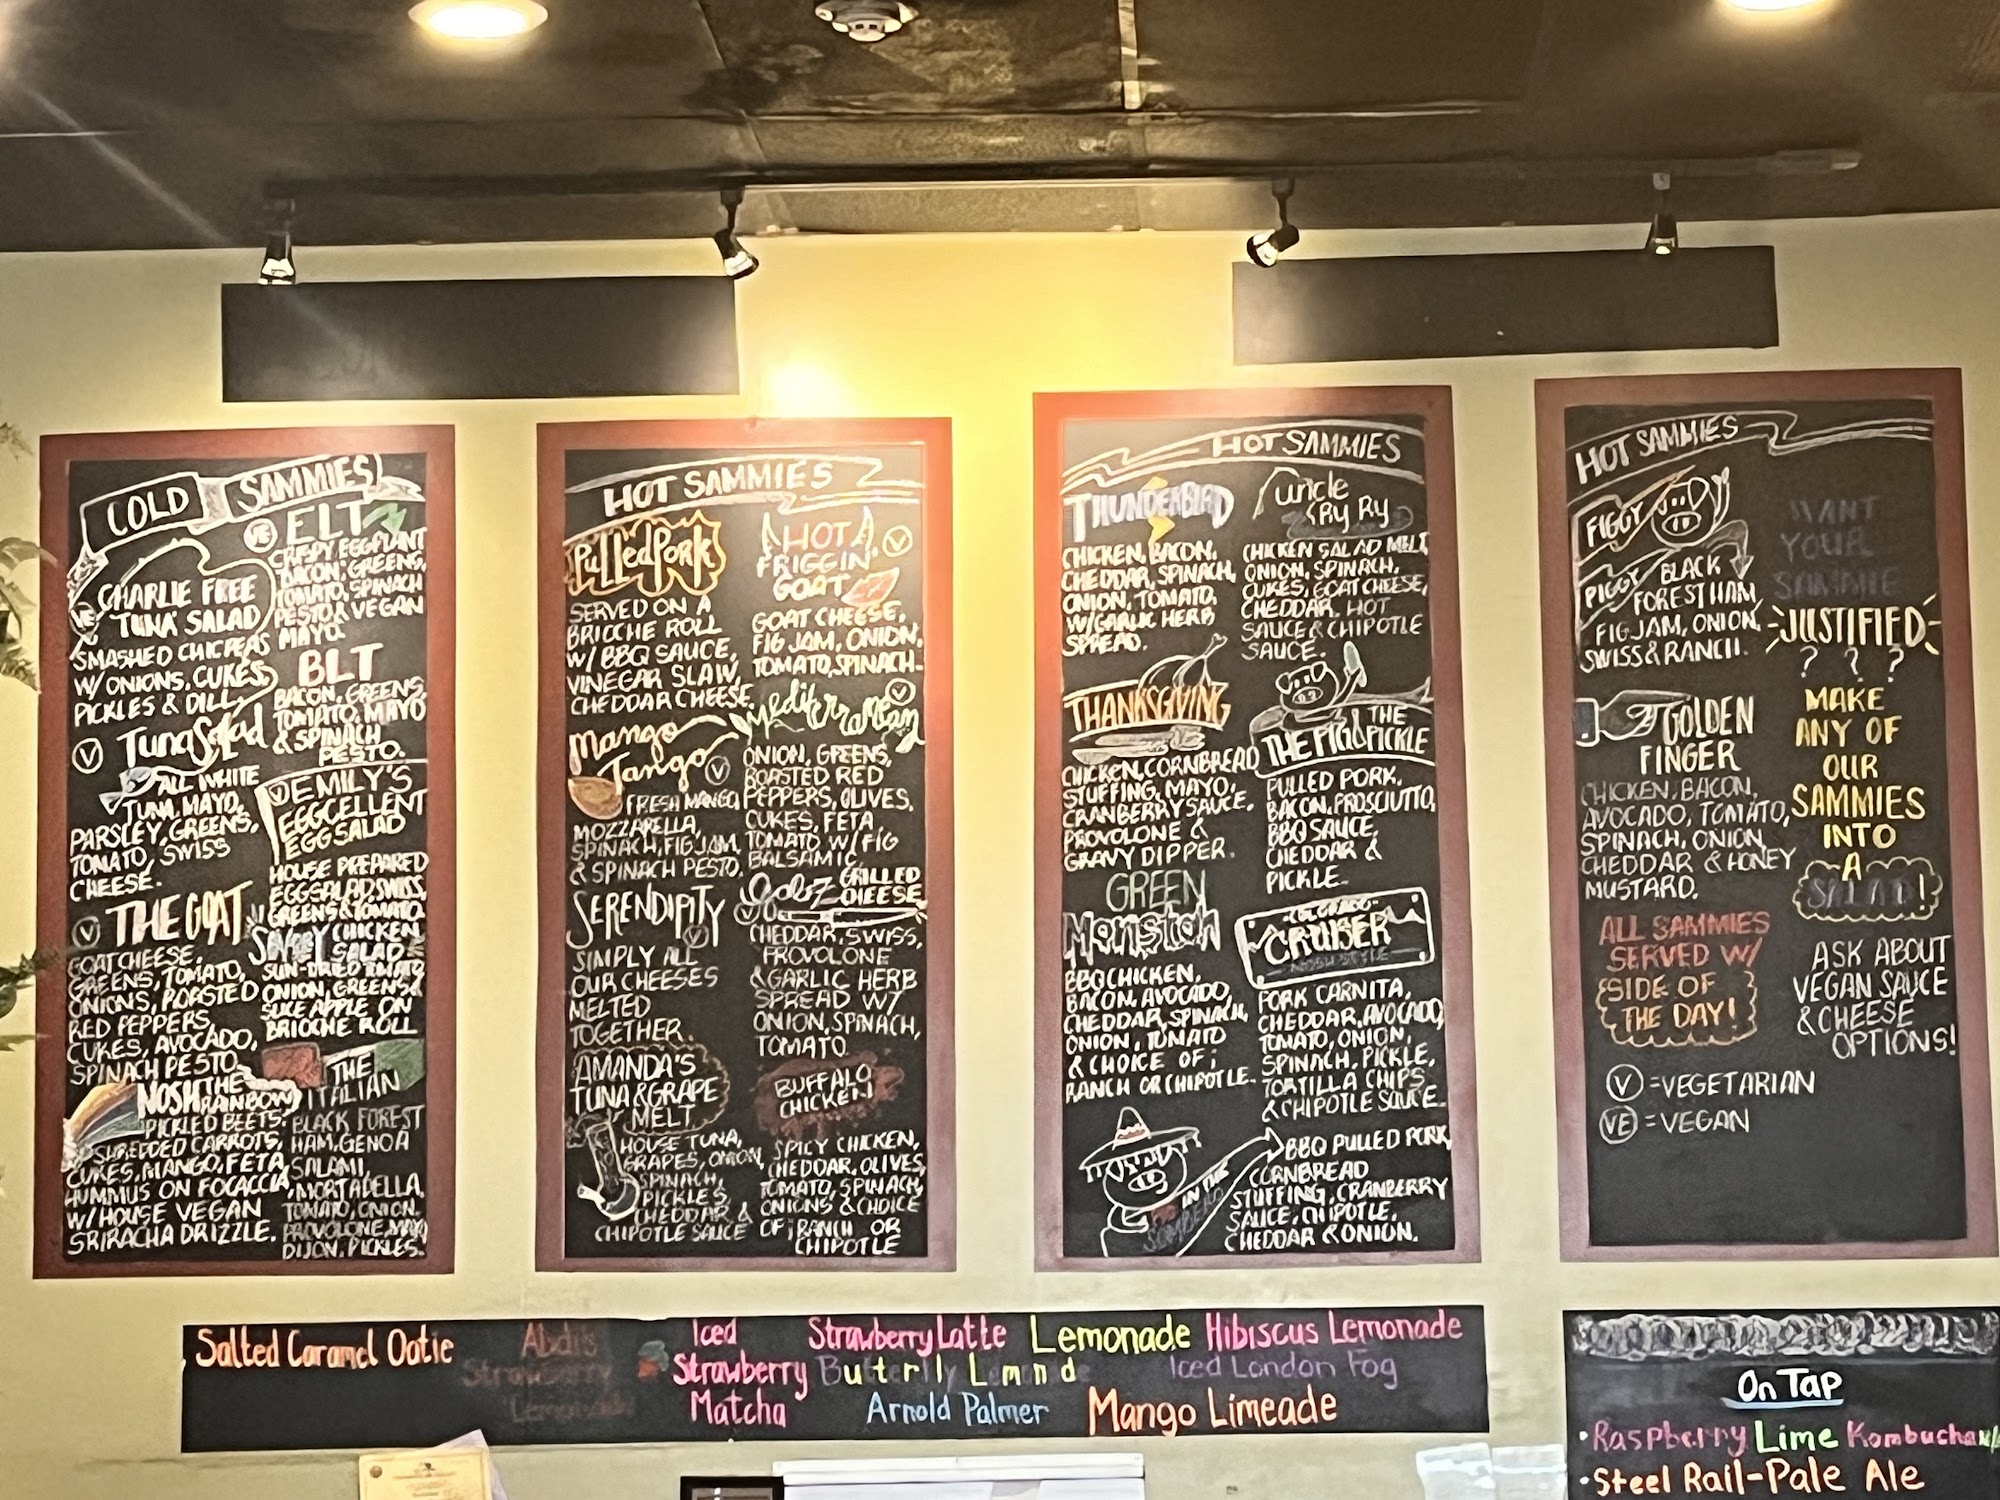 COLD SAMMIES
VE CHARLIE FREE
TUNA SALAD
SMASHED CHICPEAS
W/ ONIONS, CUKES,
PICKLES & DILL
V Tuna Salad
ALL WHITE
TUNA, MAYO,
PARSLEY, GREENS,
TOMATO, SWISS
CHEESE.
V THE GOAT
GOAT CHEESE,
GREENS, TOMATO,
ONIONS, ROASTED
RED PEPPERS,
CUKES, AVOCADO,
SPINACH PESTO
NOSH THE
RAINBOW
PICKLED BEETS,
SHREDDED CARROTS,
CUKES, MANGO, FETA,
HUMMUS ON FOCACCIA
W/HOUSE VEGAN
SRIRACHA DRIZZLE.
VE ELT
CRISPY EGGPLANT
BACON, GREENS,
TOMATO, SPINACH
PESTO & VEGAN
MAYO.
BLT
BACON, GREENS,
TOMATO, MAYO
& SPINACH
PESTO.
V EMILY'S
EGGCELLENT
EGG SALAD
HOUSE PREPARED
EGGSALAD, SWISS,
GREENS & TOMATO
SAVORY CHICKEN
SALAD
SUN-DRIED TOMATO
ONION, GREENS &
SLICE APPLE ON
BRIOCHE ROLL
THE
ITALIAN
BLACK FOREST
HAM, GENOA
SALAMI,
MORTADELLA,
TOMATO, ONION,
PROVOLONE, MAYO
DIJON, PICKLES.
HOT SAMMIES
Pulled Pork
SERVED ON A
BRIOCHE ROLL
W/ BBQ SAUCE,
VINEGAR SLAW,
CHEDDAR CHEESE.
Mango
Tango V
FRESH MANGO,
MOZZARELLA,
SPINACH, FIG JAM,
& SPINACH PESTO.
SERENDIPITY
V
SIMPLY ALL
OUR CHEESES
MELTED
TOGETHER.
AMANDA'S
TUNA & GRAPE
MELT
HOUSE TUNA,
GRAPES, ONION,
SPINACH,
PICKLES,
CHEDDAR, &
CHIPOTLE SAUCE
HOT A V
FRIGGIN'
GOAT
GOAT CHEESE,
FIG JAM, ONION,
TOMATO, SPINACH.
Mediterranean V
ONION, GREENS,
ROASTED RED
PEPPERS, OLIVES,
CUKES, FETA,
TOMATO W/ FIG
BALSAMIC.
GRILLED
CHEESE
V
CHEDDAR, SWISS,
PROVOLONE
& GARLIC HERB
SPREAD W/
ONION, SPINACH,
TOMATO.
BUFFALO
CHICKEN
SPICY CHICKEN,
CHEDDAR, OLIVES,
TOMATO, SPINACH,
ONIONS & CHOICE
OF; RANCH OR
CHIPOTLE
HOT SAMMIES
THUNDERBIRD
CHICKEN, BACON,
CHEDDAR, SPINACH,
ONION, TOMATO,
W/GARLIC HERB
SPREAD.
THANKSGIVING
CHICKEN, CORNBREAD
STUFFING, MAYO,
CRANBERRY SAUCE,
PROVOLONE &
GRAVY DIPPER.
GREEN
Monstah
BBQ CHICKEN,
BACON, AVOCADO,
CHEDDAR, SPINACH,
ONION, TOMATO
& CHOICE OF;
RANCH OR CHIPOTLE.
Uncle
Ry Ry
CHICKEN SALAD MELT,
ONION, SPINACH,
CUKES, GOAT CHEESE,
CHEDDAR. HOT
SAUCE & CHIPOTLE
SAUCE.
THE
PICKLE
PULLED PORK,
BACON, PROSCIUTTO,
BBQ SAUCE,
CHEDDAR &
PICKLE.
COLORADO
CRUISER
NOSH STYLE
PORK CARNITA,
CHEDDAR, AVOCADO,
TOMATO, ONION,
SPINACH, PICKLE,
TORTILLA CHIPS
& CHIPOTLE SAUCE.
PIG IN THE
SOMBRERO
BBQ PULLED PORK,
CORNBREAD
STUFFING, CRANBERRY
SAUCE, CHIPOTLE,
CHEDDAR & ONION.
HOT SAMMIES
FIGGY
PIGGY
BLACK
FOREST HAM,
FIG JAM, ONION,
SWISS & RANCH.
GOLDEN
FINGER
CHICKEN, BACON,
AVOCADO, TOMATO,
SPINACH, ONION,
CHEDDAR & HONEY
MUSTARD.
ALL SAMMIES
SERVED W/
SIDE OF
THE DAY!
V = VEGETARIAN
VE = VEGAN
WANT
YOUR
SAMMIE
JUSTIFIED
? ? ?
MAKE
ANY OF
OUR
SAMMIES
INTO
A
SALAD!
ASK ABOUT
VEGAN SAUCE
& CHEESE
OPTIONS!
Salted Caramel Oatie
Abdi's
Strawberry
Lemonade
Iced
Strawberry
Matcha
Strawberry Latte Lemonade Hibiscus Lemonade
Butterfly Lemonade Iced London Fog
Arnold Palmer Mango Limeade
On Tap
• Raspberry Lime Kombucha
• Steel Rail-Pale Ale